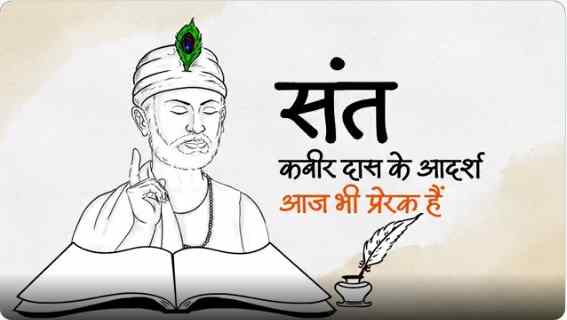 संत
कबीर दास के आदर्श
आज भी प्रेरक हैं